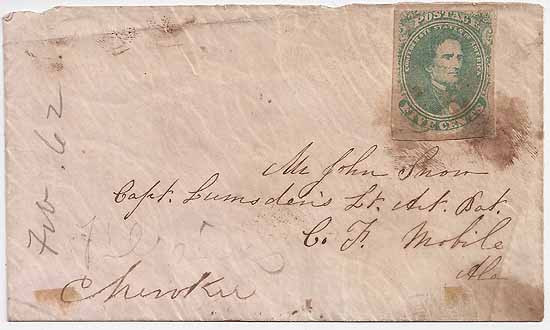 POSTAGE
CONFEDERATE STATES OF AMERICA
FIVE CENTS
Feb. 62
Mr John Snow
Capt. Lumsden's Lt. Art. Bat.
C. F. Mobile
Ala
Cherokee